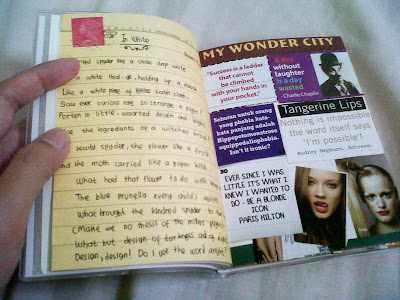 In White
spider like a snow drop white
a white Heal-all, holding up a
Like a white piece of satin cloth
Saw ever curious eye so strange a
Portent in little, assorted death and
the ingredients of a witches
beady spider, the flower like a froth
and the moth carried like a paper
What had that flower to do with
The blue prunella every child's
What brought the kindred spider to
(Make we no thesis of the miller's
What but design of darkness and of
Design, design! Do I use the word aright?
MY WONDER CITY
"Success is a ladder
that cannot
be climbed
with your hands in
your pocket."
A day
without
laughter
is a day
wasted
Charlie Chaplin
Sebutan untuk orang
yang phobia kata-
kata panjang adalah
Hippopotomonstrose
squippedaliophobia.
Isn't it ironic?
Tangerine Lips
Nothing is impossible
the word itself says
'I'm possible'!
Audrey Hepburn, Actress
30
EVER SINCE I WAS
LITTLE IT'S WHAT I
KNEW I WANTED TO
DO - BE A BLONDE
ICON.
PARIS HILTON